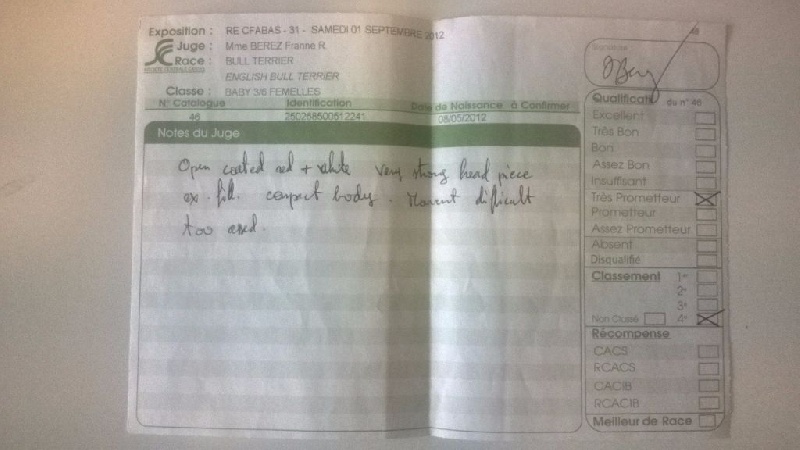 Exposition : RE CFABAS - 31 - SAMEDI 01 SEPTEMBRE 2012
Juge : Mme BEREZ Franne R.
Race : BULL TERRIER
ENGLISH BULL TERRIER
Classe : BABY 3/6 FEMELLES
N° Catalogue Identification Date de Naissance à Confirmer
46 250268500512241 08/05/2012
Notes du Juge
Open coated red + white very strong head piece
ex. fill. compact body. Movment difficult
too
46
Signature
Qualificatif du n° 46
Excellent
Très Bon
Bon
Assez Bon
Insuffisant
Très Prometteur
Prometteur
Assez Prometteur
Absent
Disqualifié
Classement 1er
2e
3e
Non Classé 4e
Récompense
CACS
RCACS
CACIB
RCACIB
Meilleur de Race